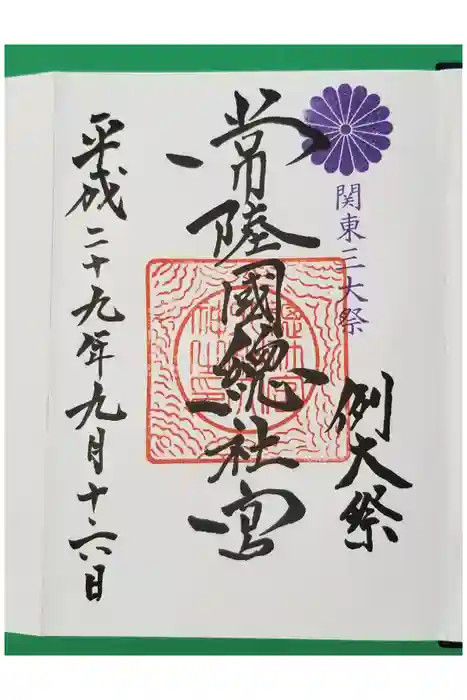 関東三大祭
例大祭
常陸國總社宮
平成二十九年九月十六日